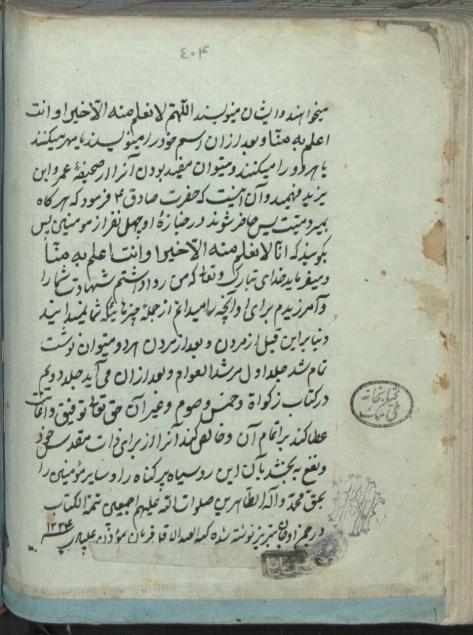 ۴۰۴
میخواهند و ایشان مینویسند اللّهم لا نعلم منه الّا خیرا و انت
اعلم به منّا و بعد از ان اسم خود را مینویسند یا مهر میکنند
یا هر دو را میکنند و میتوان مفید بودن آنرا از صحیفهٔ عمر و ابن
یزید فهمید و آن اینست که حضرت صادق ع فرمود که هر کاه
بمیرد میّت پس حاضر شوند در جنازهٔ او چهل نفر از مومنین پس
بگویند که انّا لا نعلم منه الّا خیرا و انت اعلم به منّا
میفرماید خدای تبارک و تعالی که من روا داشتم شهادت شما را
و آمرزیدم برای او آنچه را میدانم از جملهٔ چیزهائیکه شما نمیدانید
و بنا بر این قبل از مردن و بعد از مردن هر دو میتوان نوشت
تمام شد جلد اول مرشد العوام و بعد از ان می آید جلد دویم
در کتاب زکواة و خمس و صوم و غیر آن حق تعالی توفیق و اعانت
عطا کند بر اتمام آن و خالص کند آنرا از برای ذات مقدس خود
و نفع به بخشد بآن این رو سیاه پر کناه را و سایر مؤمنین را
بحق محمّد و آله الطاهرین صلوات الله علیهم اجمعین تمة الکتاب
در تبریز نوشته شده کتبه العبد ۱۲۳۴
کتابخانه
ملی ملک